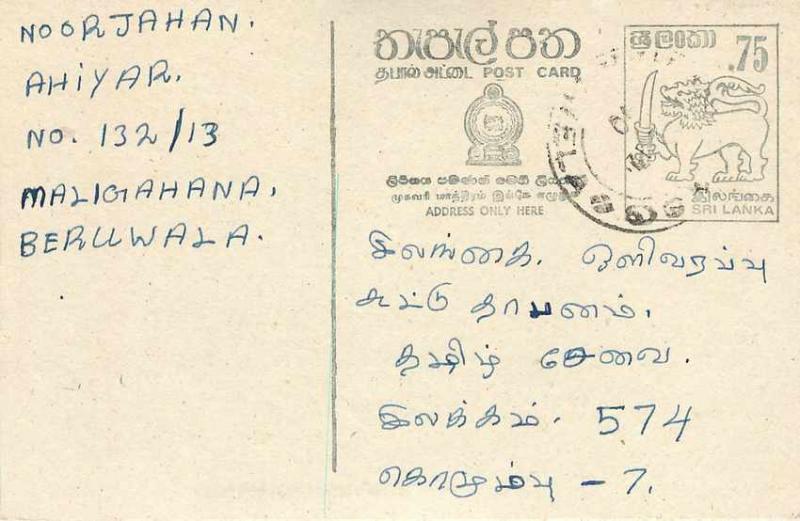 NOORJAHAN.
AHiYAR.
NO. 132/13
MALIGAHANA,
BERUWALA.
තැපැල් පත
தபால் அட்டை POST CARD
ලිපිනය පමණක් මෙහි
முகவரி மாத்திரம் இங்கே
ADDRESS ONLY HERE
ශ්‍රී ලංකා
.75
இலங்கை
SRI LANKA
இலங்கை. ஒளிவரப்பு
கூட்டு தாபனம்.
தமிழ் சேவை.
இலக்கம். 574
கொழும்பு - 7.